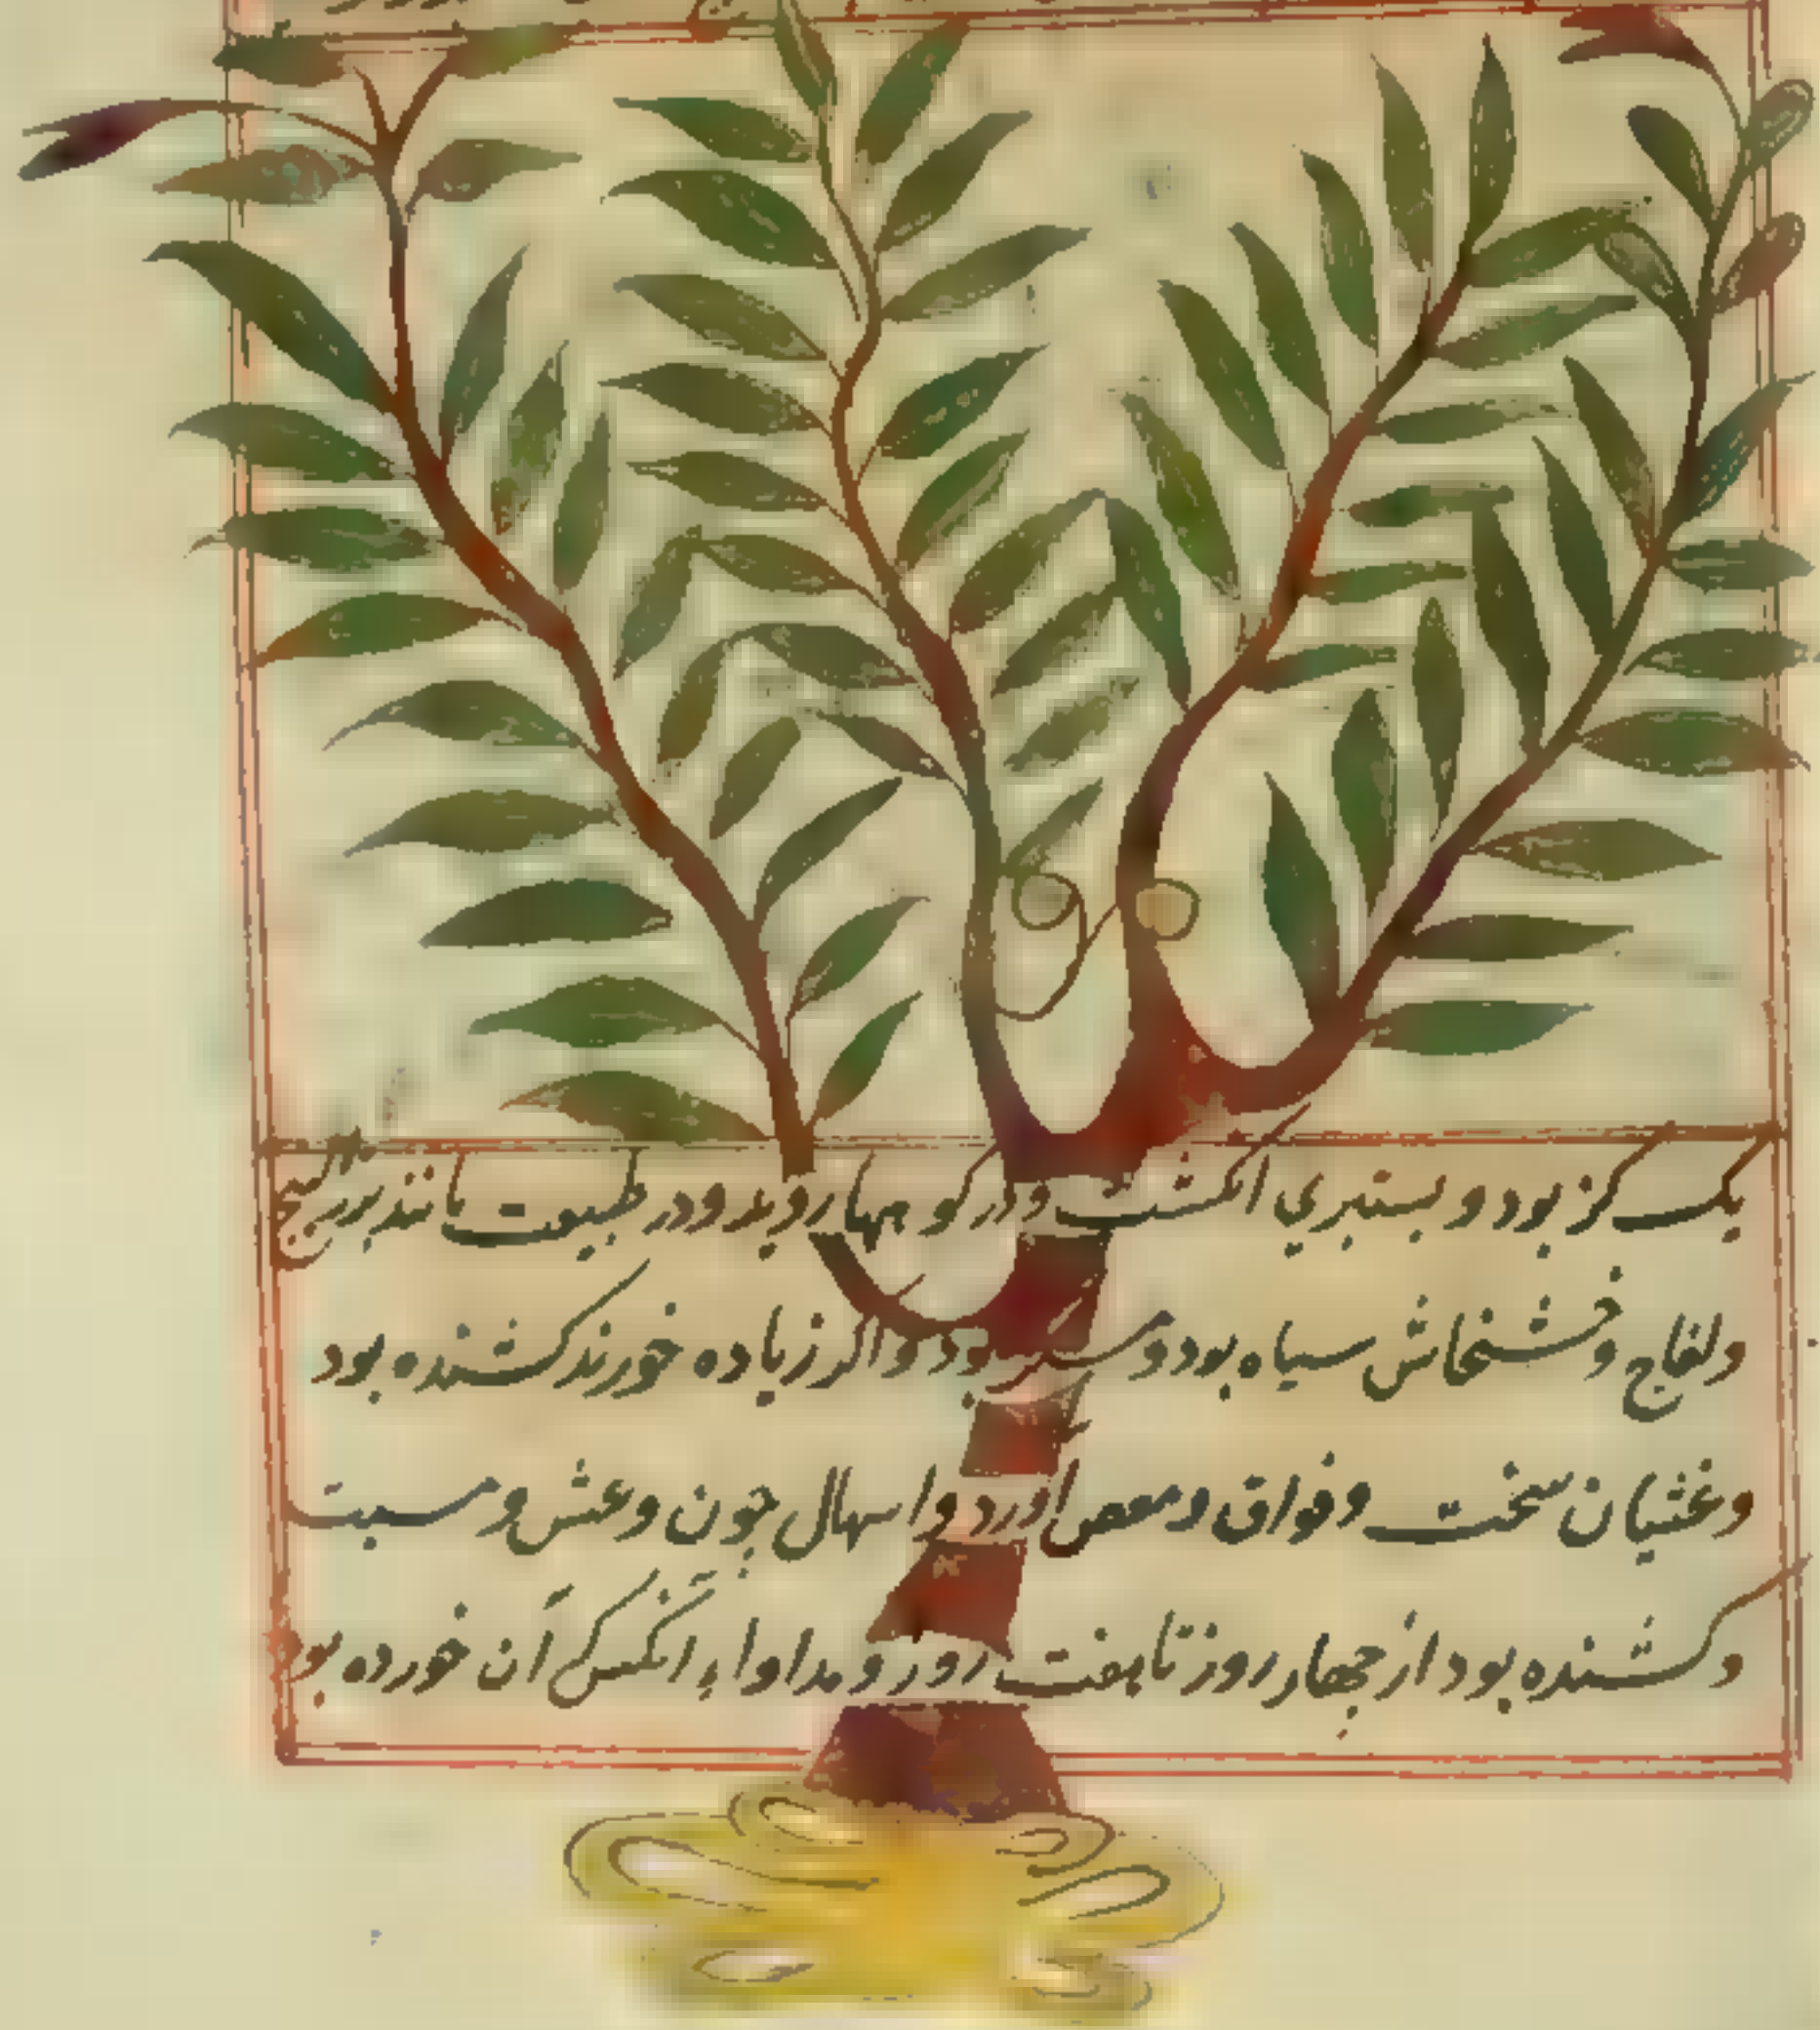 یک کز بود و بستبری انکشت و در کو مها روید و در طبیعت مانند برز البنج
و لفاح و خشخاش سیاه بود و بود و اکر زیاده خورند کشنده بود
و غثیان سخت و فواق و مغص اورد و اسهال خون و غش و سبت
و کشنده بود از چهار روز تا هفت روز و مداواء انکس که آن خورده بود